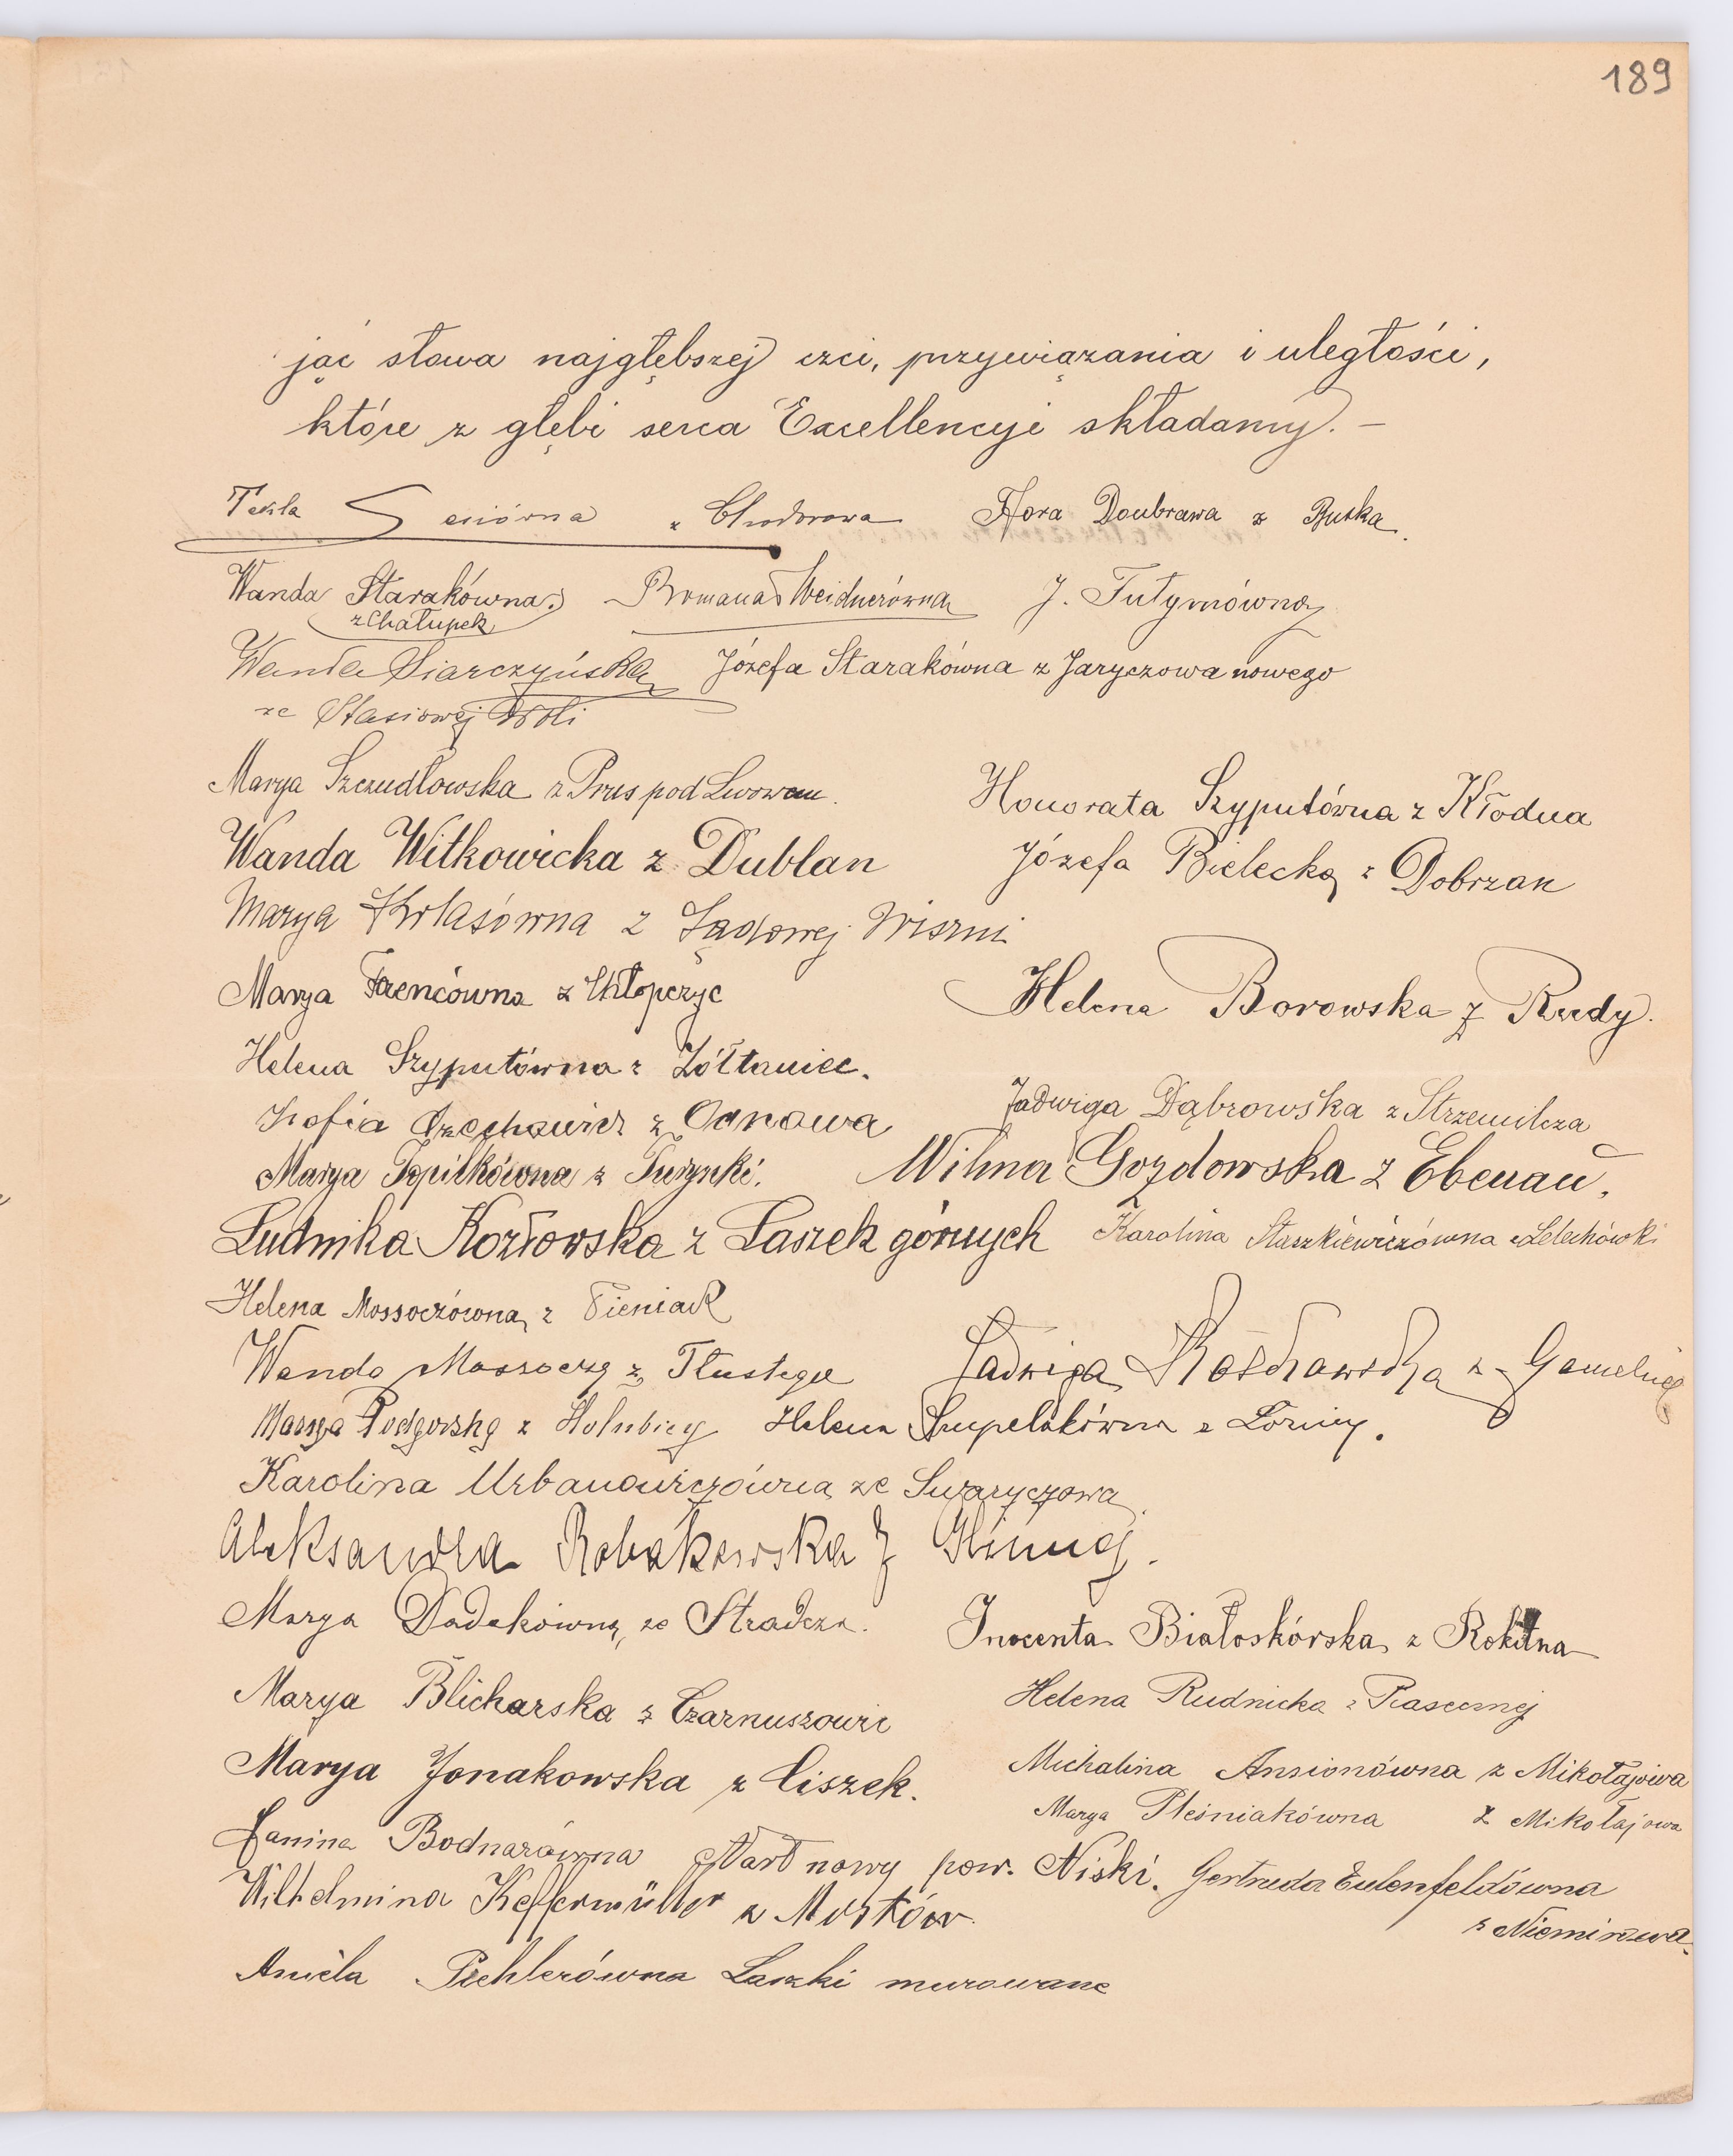 189
jąc słowa najgłębszej czci, przywiązania i uległości,
które z głębi serca Excellencyi składamy. —
Tekla z Chodorowa Flora Doubrawa z Buska.
Wanda Starakówna. Romana Weidnerówna J. Tutymówna
z Chałupek
Wanda Siarczyńska Józefa Starakówna z Jaryczowa nowego
ze Stasiowej Woli
Marya Szczudłowska z Prus pod Lwowem. Honorata Szyputówna z Kłodna
Wanda Witkowicka z Dublan Józefa Bielecka z Dobrzan
Marya z Sądowej Wiszni
Marya z Chłopczyc Helena Borowska z Rudy.
Helena Szyputówna z Żółtaniec.
Zofia z Jadwiga Dąbrowska z Strzemilcza
Marya z Wilma Gozdowska z Ebenau.
Ludmika Kozłowska z Laszek górnych Karolina Staszkiewiczówna z Lelechówki
Helena Mossoczówna z Pieniak
Wanda Mossoczy z Tłustego Jadwiga z
Marya Podgórska z Hołubicy Helena z
Karolina Urbanowiczówna ze Swaryczowa
Aleksandra Robakowska z
Marya Dadakówna ze Stradcza. Inocenta Białoskórska z Rokitna
Marya Blicharska z Czarnuszowic Helena Rudnicka z Piasecznej
Marya Jonakowska z Liszek. Michalina Ansionówna z Mikołajowa
Marya Pleśniakówna z Mikołajowa
Janina Bodnarówna Nart nowy pow. Niski. Gertruda Eulenfeldówna
Wilhelmina Keffermüller z Mostów z
Aniela Piehlerówna Laszki murowane